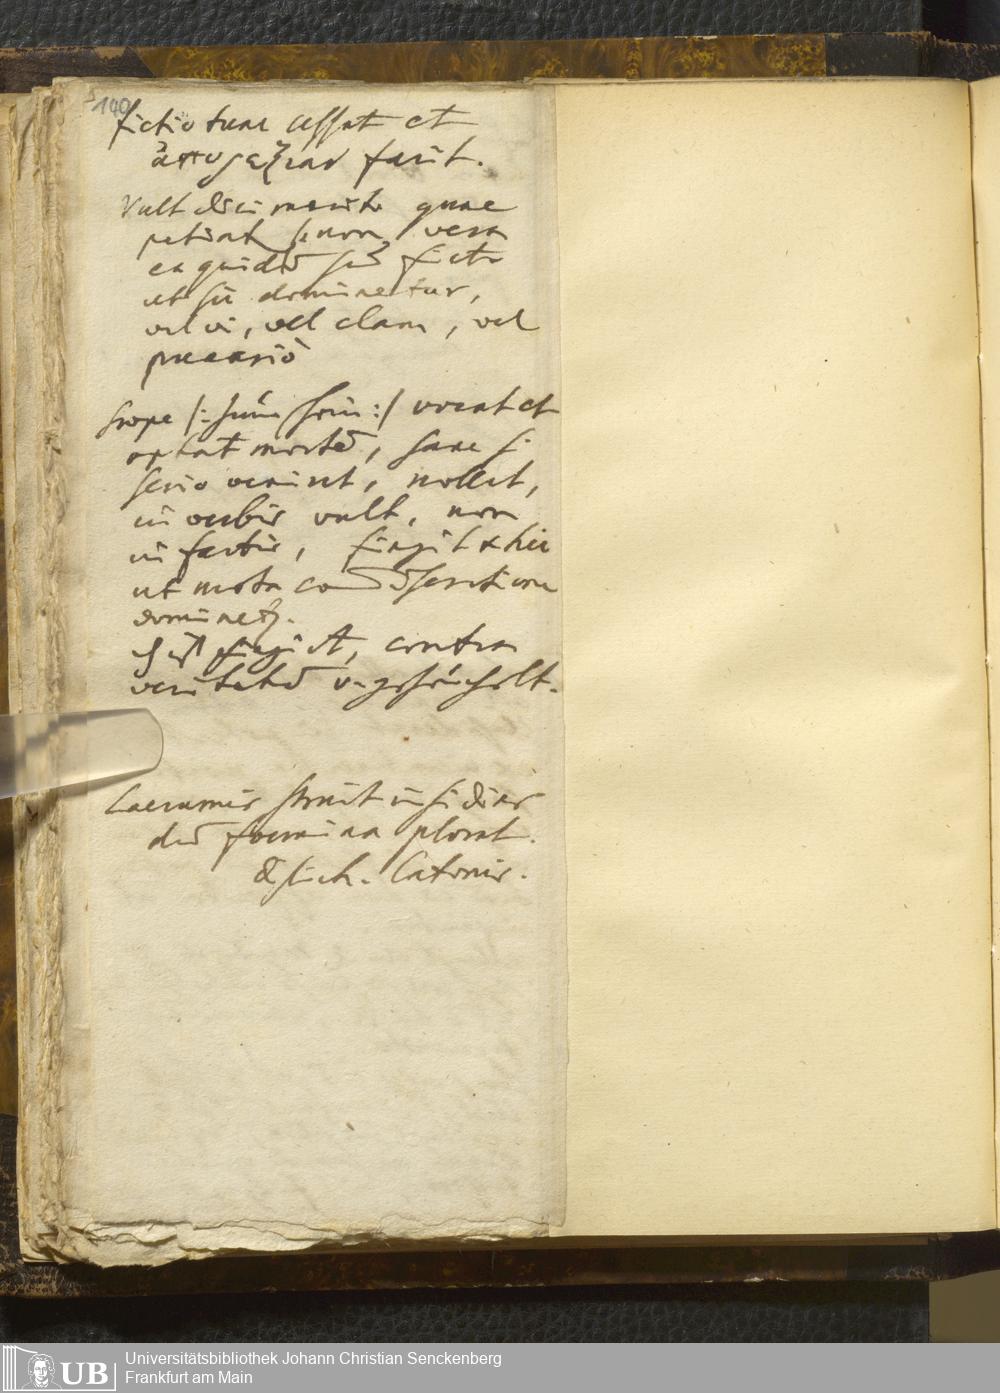 140
fictio tunc cessat et
facit.
Vult dici merito quae
petiat non vera
ea quidē sed ficta
ut sic dominetur,
vel vi, vel clam, vel
precariò
saepe vocat et
optat mortē, sane si
serio veniret, nollet,
in verbis vult, non
in factis, fingit & hic
ut mota
dominetʒ.
fingit, contra
veritatē
Lacrumis struit insidias
dū foemina plorat.
Distich. Catonis.
UB
Universitätsbibliothek Johann Christian Senckenberg
Frankfurt am Main